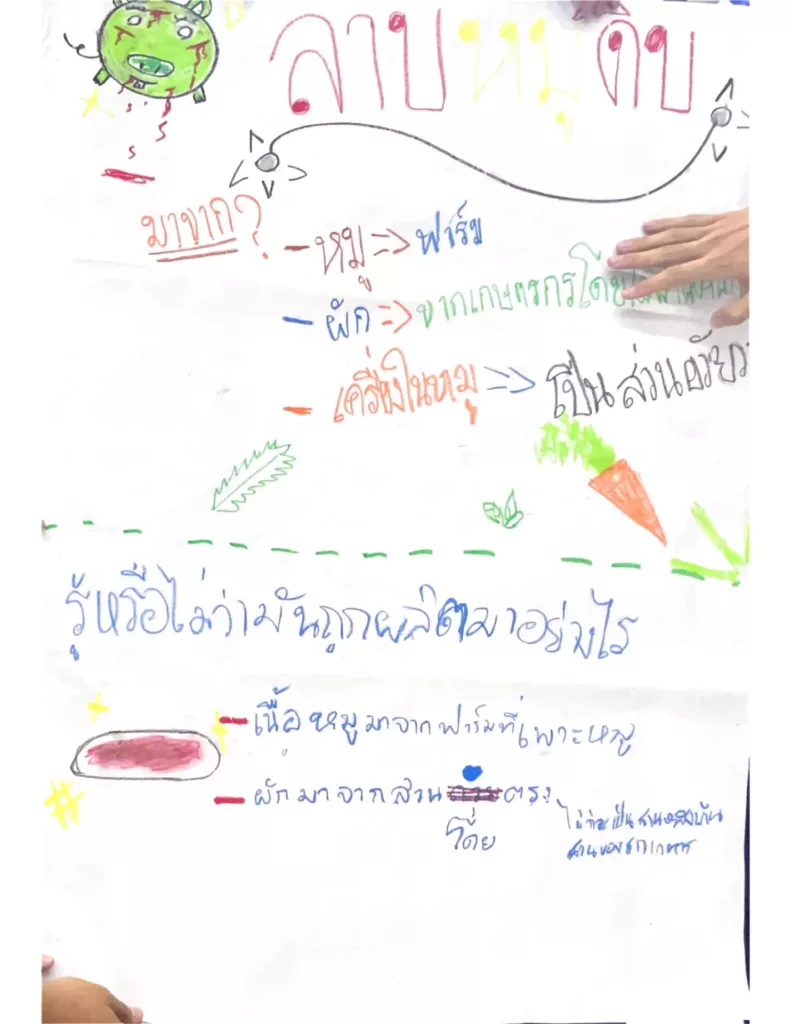 ลาบหมูดิบ
มาจาก?
- หมู => ฟาร์ม
- ผัก => จากเกษตรกรโดย
- เครื่องในหมู => เป็นส่วนอวัยว
รู้หรือไม่ว่ามันถูกผลิตมาอย่างไร
- เนื้อหมูมาจากฟาร์มที่เพาะหมู
- ผักมาจากสวน ตรง
โดย
ไม่ว่าจะเป็นสวนหลังบ้าน